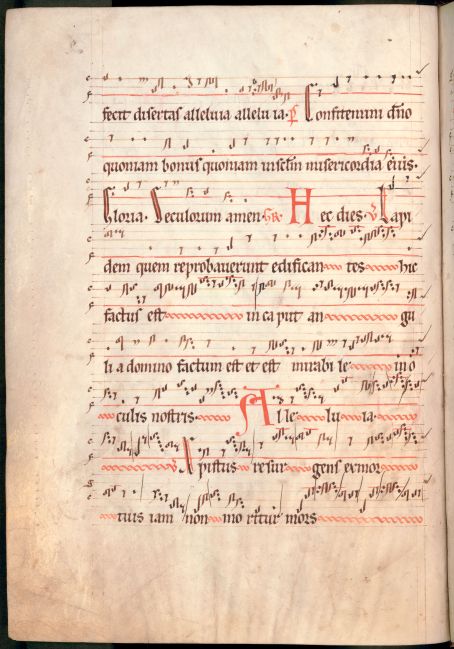 fecit disertas alleluia allelu ia. p̄ Confitemini dn̄o
quoniam bonus quoniam in sclm misericordia eius.
Gloria. Seculorum amen. Gr̄. Hec dies. v̄ Lapi
dem quem reprobaverunt edifican tes hic
factus est in caput an gu
li a domino factum est et est mirabi le in o
culis nostris. Alle lu ia.
v̄ Xpistus resur gens ex mor
tuis iam non mo ritur mors